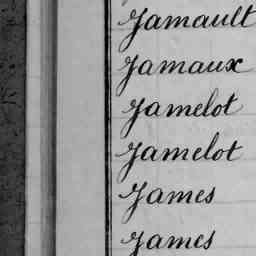 Jamault
Jamaux
Jamelot
Jamelot
James
James